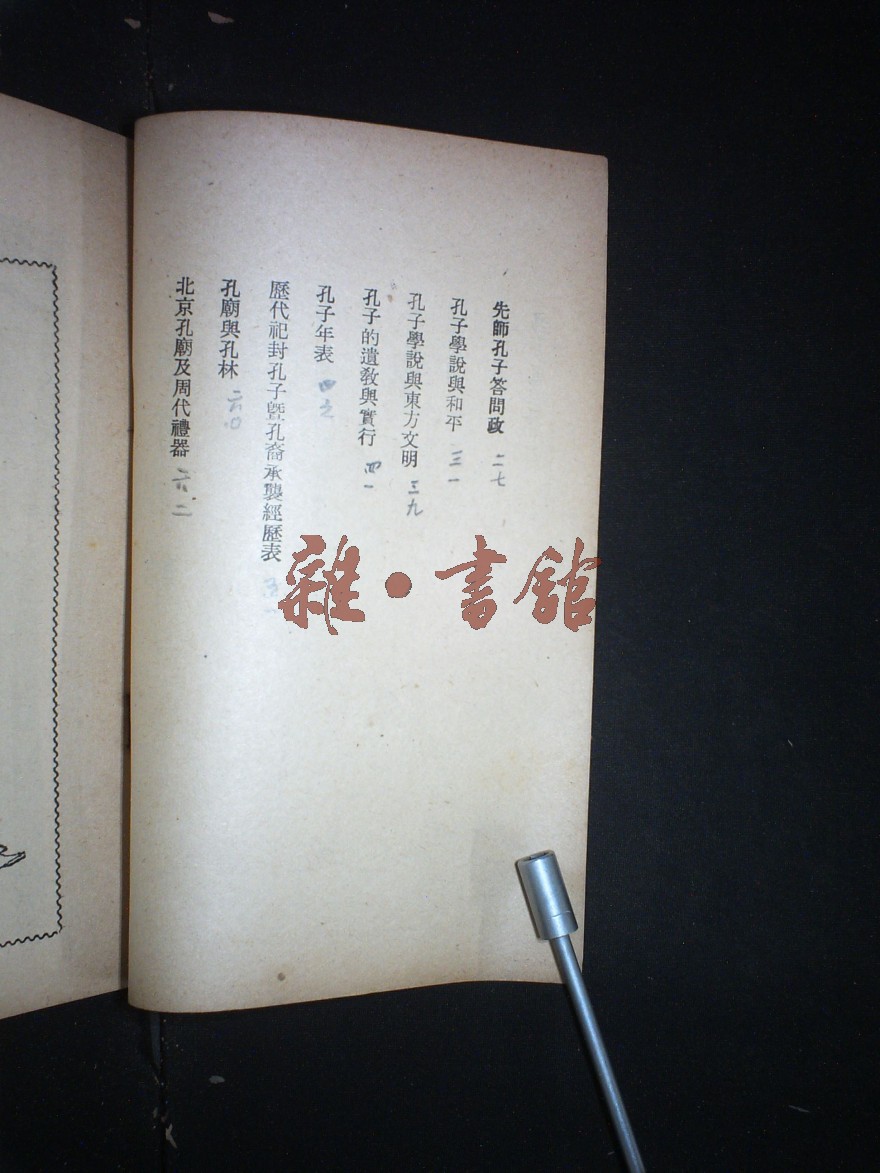 先師孔子答問政 二七
孔子學說與和平 三一
孔子學說與東方文明 三九
孔子的遺教與實行 四一
孔子年表 四
歷代祀封孔子暨孔裔承襲經歷表
孔廟與孔林
北京孔廟及周代禮器
雜·書館